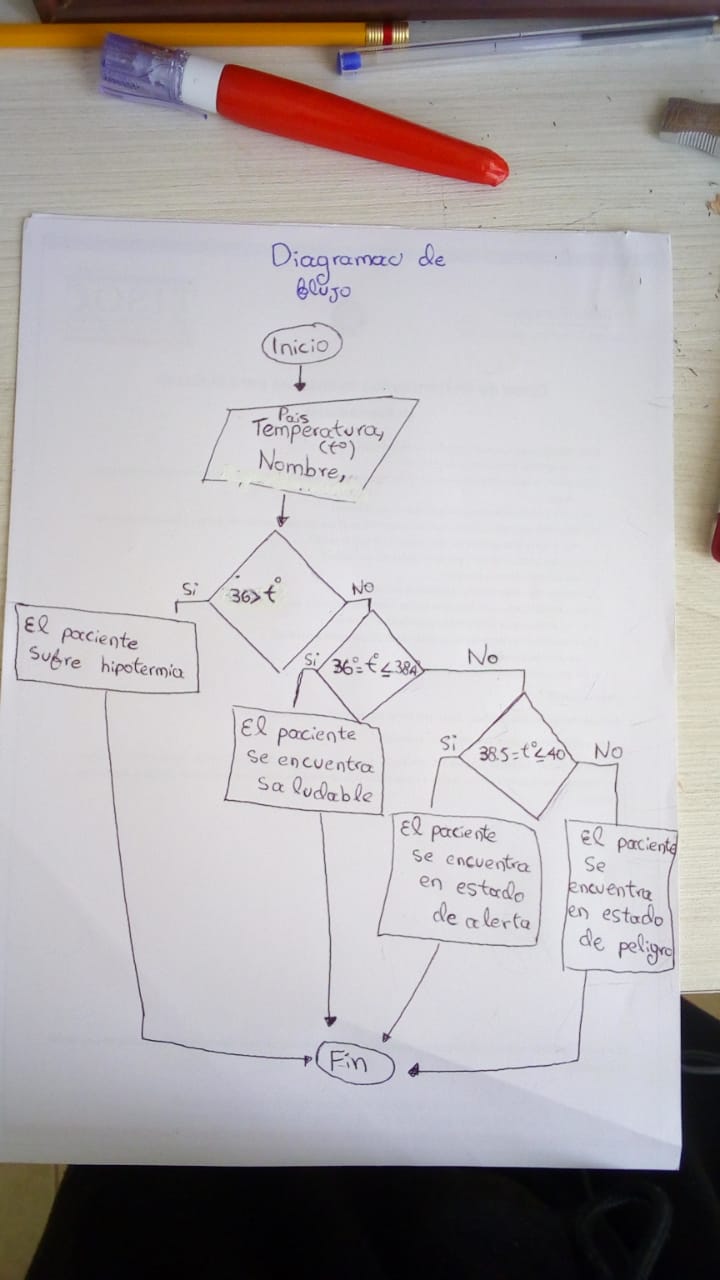 Diagramac de
flujo
Inicio
Pais
Temperatura,
(t°)
Nombre,
Si
36>t°
No
El paciente
sufre hipotermia
Si
36°=t°≤38.4
No
El paciente
se encuentra
saludable
Si
38.5=t°≤40
No
El paciente
se encuentra
en estado
de alerta
El paciente
se
encuentra
en estado
de peligro
Fin